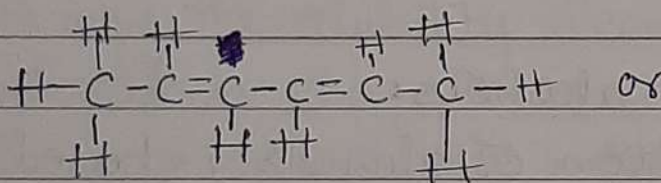 H H H H
H-C-C=C-C=C-C-H or
H H H H